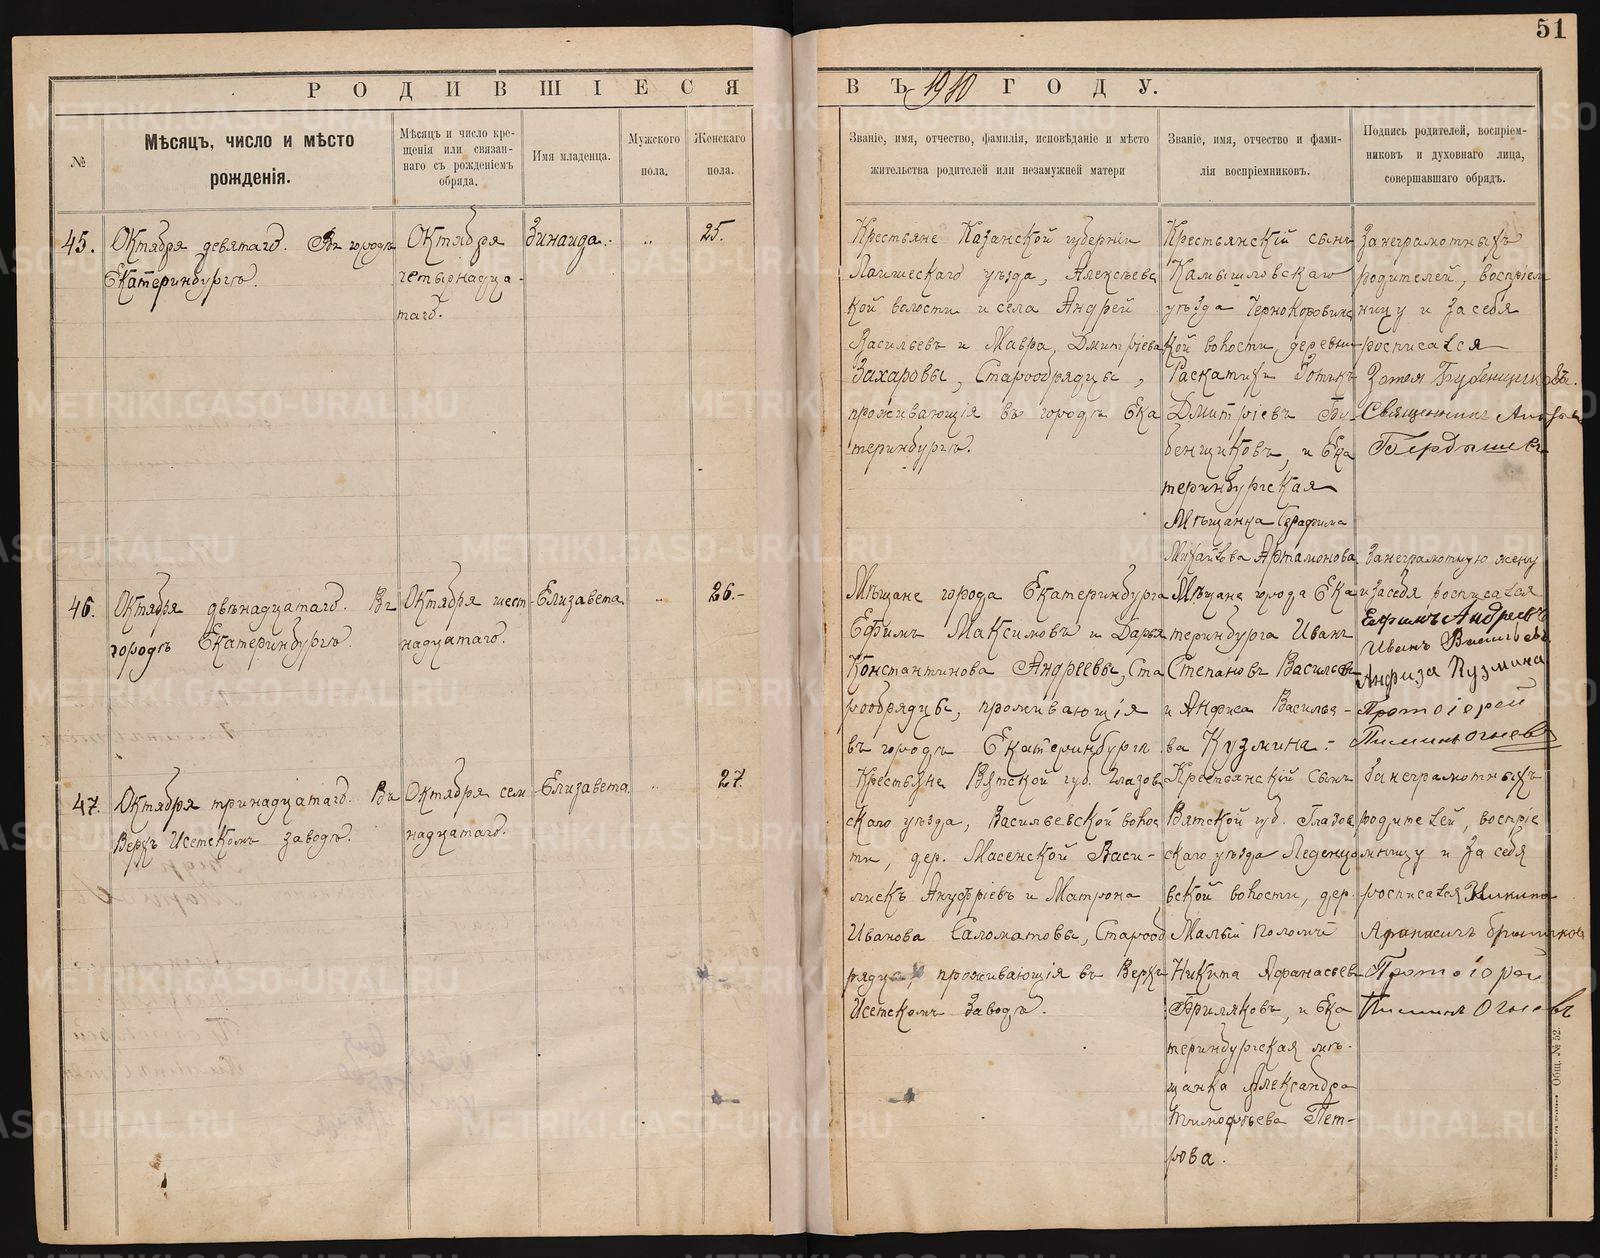 51
РОДИВШІЕСЯ ВЪ 1910 ГОДУ.
№
Мѣсяцъ, число и мѣсто
рожденія.
Мѣсяцъ и число кре-
щенія или связан-
наго съ рожденіемъ
обряда.
Имя младенца.
Мужского
пола.
Женскаго
пола.
Званіе, имя, отчество, фамилія, исповѣданіе и мѣсто
жительства родителей или незамужней матери
Званіе, имя, отчество и фами-
лія воспріемниковъ.
Подпись родителей, воспріем-
никовъ и духовнаго лица,
совершавшаго обрядъ.
45.
Октября девятаго. Въ городѣ
Екатеринбургѣ.
Октября
четырнадца-
таго.
Зинаида.
„
25.
Крестьяне Казанской губерніи
Лаишескаго уѣзда, Алексѣевс
кой волости и села Андрей
Васильевъ и Мавра Дмитріева
Захаровы, Старообрядцы,
проживающія въ городѣ Ека
теринбургѣ.
Крестьянскій сынъ
Камышловскаго
уѣзда Чернокоровинс
кой волости, деревни
Раскатихи Зотикъ
Дмитріевъ Бу-
бенщиковъ, и Ека
теринбургская
Мѣщанка Серафима
Михайлова Артамонова.
За неграмотныхъ
родителей, воспріем
ницу и за себя
росписался
Зотей Бубенщиковъ.
Священникъ
Бердышевъ
46.
Октября двѣнадцатаго. Въ
городѣ Екатеринбургѣ.
Октября шест-
надцатаго.
Елизавета.
„
26.-
Мѣщане города Екатеринбурга
Ефимъ Максимовъ и Дарья
Константинова Андреевы, Ста
рообрядцы, проживающія
въ городѣ Екатеринбургѣ
Мѣщане города Ека
теринбурга Иванъ
Степановъ Васильевъ
и Анфиса Василье-
ва Кузмина.-
За неграмотную жену
и за себя росписался
Ефимъ Андреевъ
Иванъ Васильевъ
Анфиза Кузмина
Протоіерей
Пименъ Огневъ
47.
Октября тринадцатаго. Въ
Верхъ Исетскомъ заводѣ.
Октября сем-
надцатаго.
Елизавета.
„
27.
Крестьяне Вятской губ. Глазов
скаго уѣзда, Васильевской волос
ти, дер. Масенской Васи-
лискъ Ануфріевъ и Матрона
Иванова Саломатовы, Старооб
рядцы, проживающія въ Верхъ
Исетскомъ Заводѣ.
Крестьянскій Сынъ
Вятской губ. Глазов
скаго уѣзда Леденцо
вской волости, дер.
Малый Полом
Никита Афанасьевъ
Бриляковъ, и Ека
теринбургская мѣ-
щанка Александра
Тимофѣева Пет-
рова.
За неграмотныхъ
родителей, воспріе
мницу и за себя
росписался Никита
Афанасичъ Бриляков
Протоіерей
Пименъ Огневъ
Общ. № 52.
METRIKI.GASO-URAL.RU